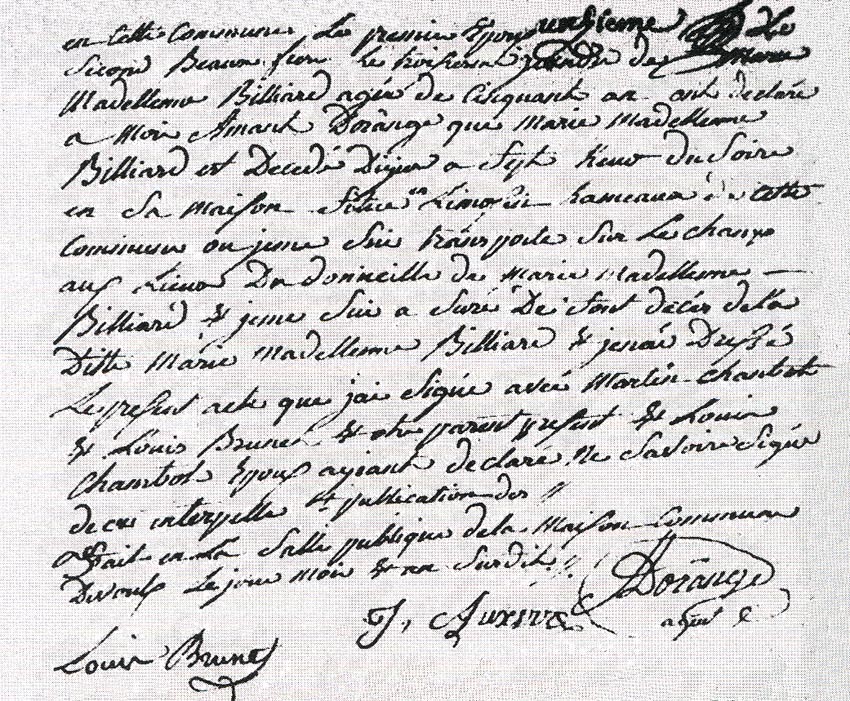 en cette Commune Le premier Epoux Le
Second Beau frere de Marie
Madelleine Billiard agée de Cinquante an ont declaré
a Moi Amant Dorange que Marie Madelleine
Billiard est Decedé Dujou a Sept heur du Soire
en Sa Maison Situé en Limosin hameaux de Cette
Commune ou jeme Sui transporte Sur Le Champ
aux Lieux Du domicille de Marie Madelleine
Billiard & jeme Sui a Suré De decés de la
Ditte Marie Madelleine Billiard & Dressé
Le present acte que jai Signé avec Martin Chambot
& Louis Brunet & parent present & Louis
Chambot Epoux ayiant declaré Ne Savoire Signé
de ce interpelle publication des
fait en La Salle publique de la Maison Commune
Le jour Moi & an Surdit
Dorange
J, Auxerre
Louis Brunet